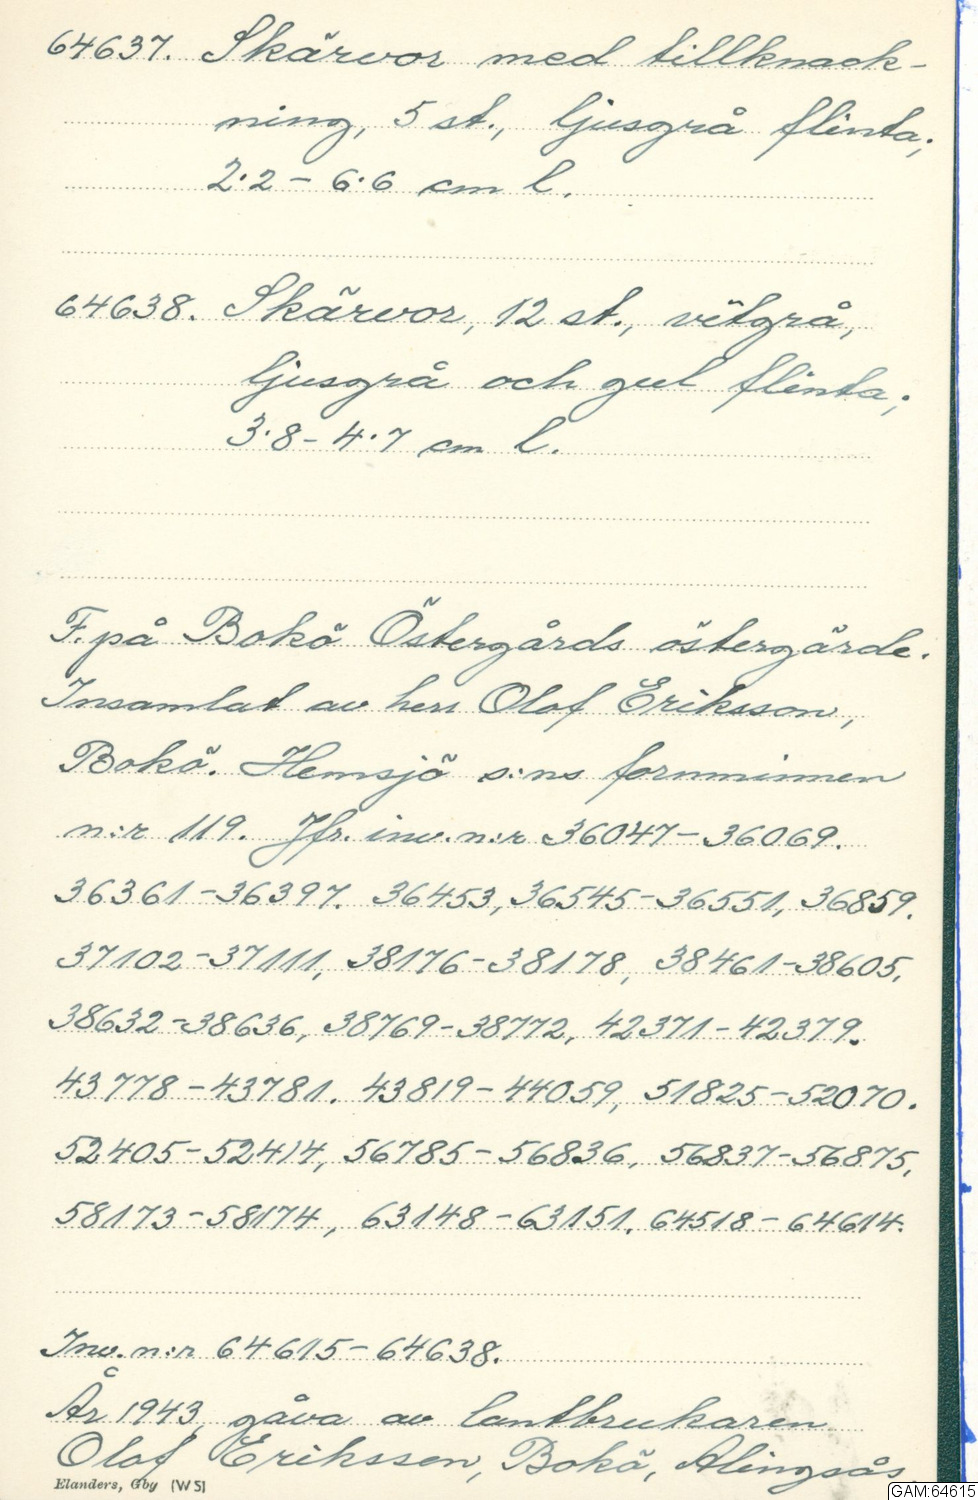 64637. Skärvor med tillknack-
ning, 5 st., ljusgrå flinta;
2.2 - 6.6 cm l.
64638. Skärvor, 12 st., vitgrå,
ljusgrå och gul flinta;
3.8 - 4.7 cm l.
F. på Bokö Östergårds östergärde.
Insamlat av herr Olof Eriksson,
Bokö. Hemsjö s:ns fornminnen
n:r 119. Jfr. inv. n:r 36047-36069.
36361-36397. 36453, 36545-36551, 36859.
37102-37111, 38176-38178, 38461-38605,
38632-38636, 38769-38772, 42371-42379.
43778-43781. 43819-44059, 51825-52070.
52405-52414, 56785-56836, 56837-56875,
58173-58174, 63148-63151, 64518-64614.
Inv. n:r 64615-64638.
År 1943, gåva av lantbrukaren
Olof Eriksson, Bokö, Alingsås.
Elanders, Gby (WS)
GAM:64615